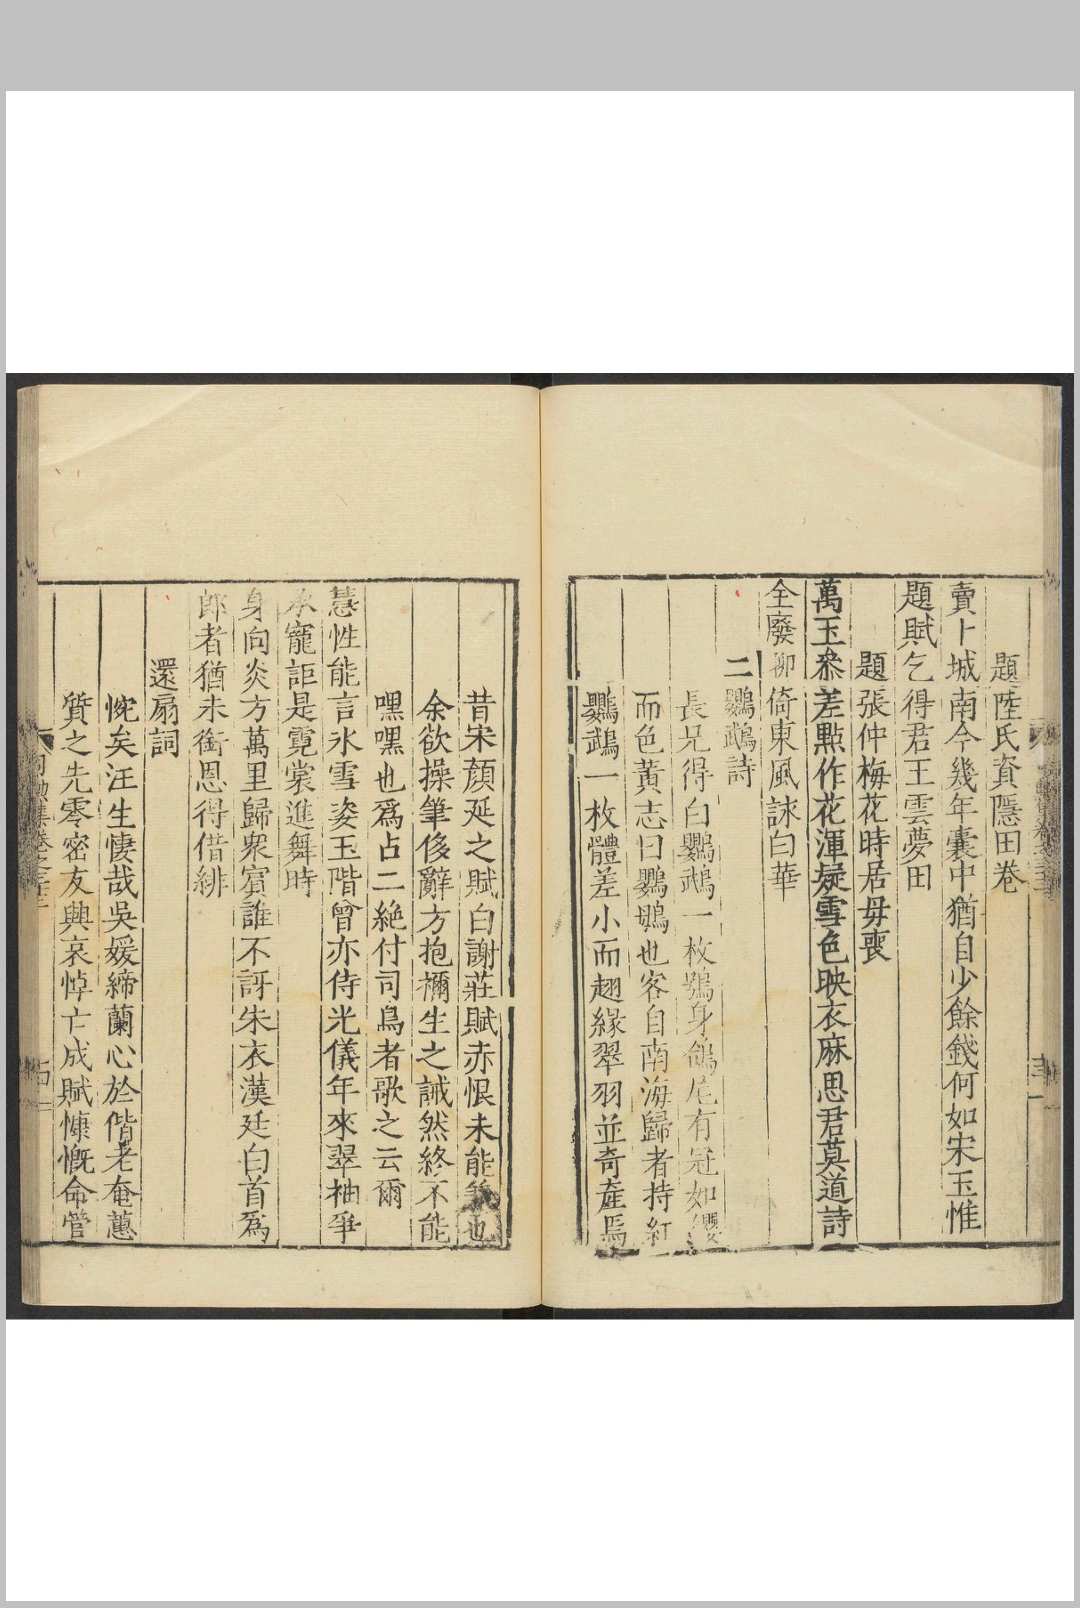 題陸氏資隱田卷
賣卜城南今幾年囊中猶自少餘錢何如宋玉惟
題賦乞得君王雲夢田
題張仲梅花時居毋喪
萬玉叅差點作花渾疑雪色映衣麻思君莫道詩
全廢聊倚東風詠白華
二鸚鵡詩
長兄得白鸚鵡一枚鴉身鴿尾有冠如纓
而色黃志曰鸚䳇也客自南海歸者持紅
鸚鵡一枚體差小而趐緣翠羽並奇產焉
昔宋顏延之賦白謝莊賦赤恨未能也
余欲操筆侈辭方抱禰生之誡然終不能
嘿嘿也爲占二絶付司鳥者歌之云爾
慧性能言氷雪姿玉階曾亦侍光儀年來翠袖爭
承寵詎是霓裳進舞時
身向炎方萬里歸衆賓誰不訝朱衣漢廷白首爲
郎者猶未銜恩得借緋
還扇詞
惋矣汪生悽哉吳媛締蘭心於偕老奄蕙
質之先零密友興哀悼亡成賦慷慨命管